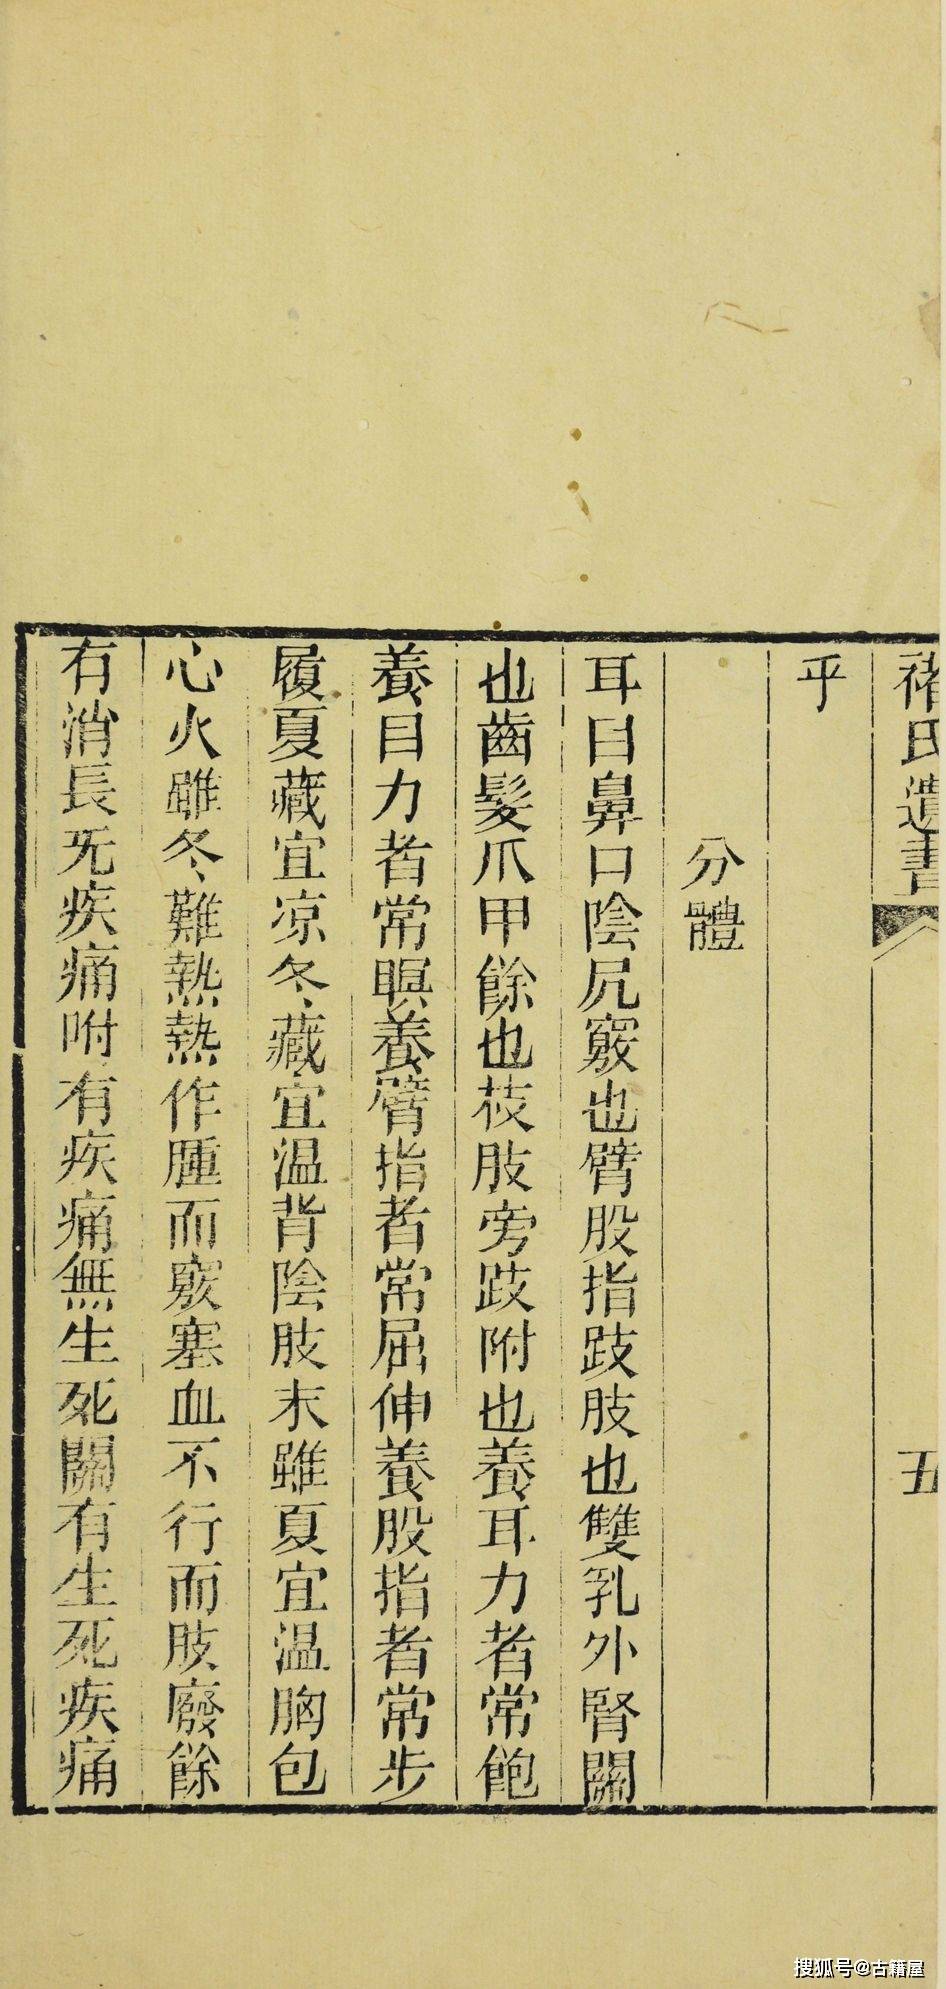 褚氏遺書
五
乎
分體
耳目鼻口陰尻竅也臂股指跂肢也雙乳外腎關
也齒髮爪甲餘也枝肢旁跂附也養耳力者常飽
養目力者常瞑養臂指者常屈伸養股指者常步
履夏藏宜凉冬藏宜温背陰肢末雖夏宜温胸包
心火雖冬難熱熱作腫而竅塞血不行而肢廢餘
有消長旡疾痛咐有疾痛無生死關有生死疾痛
搜狐号@古籍屋